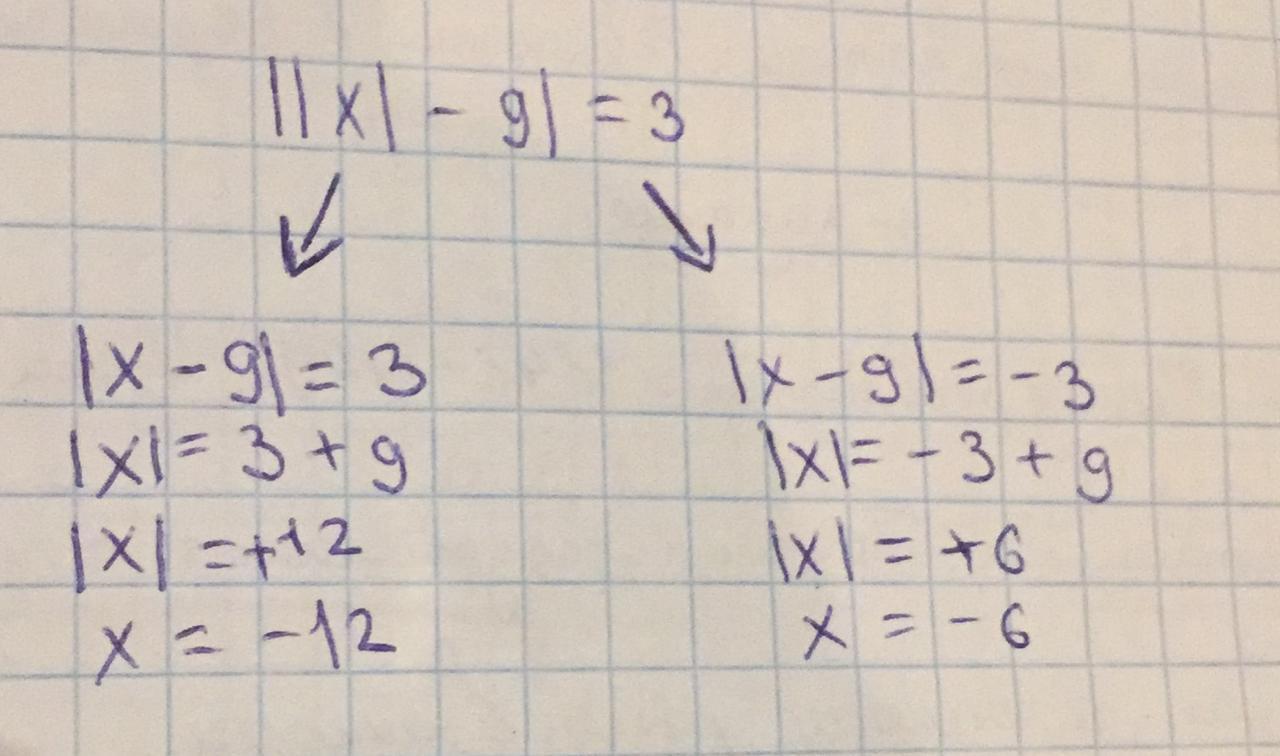 ||x| - 9| = 3
|x - 9| = 3
|x| = 3 + 9
|x| = +12
x = -12
|x - 9| = -3
|x| = -3 + 9
|x| = +6
x = -6